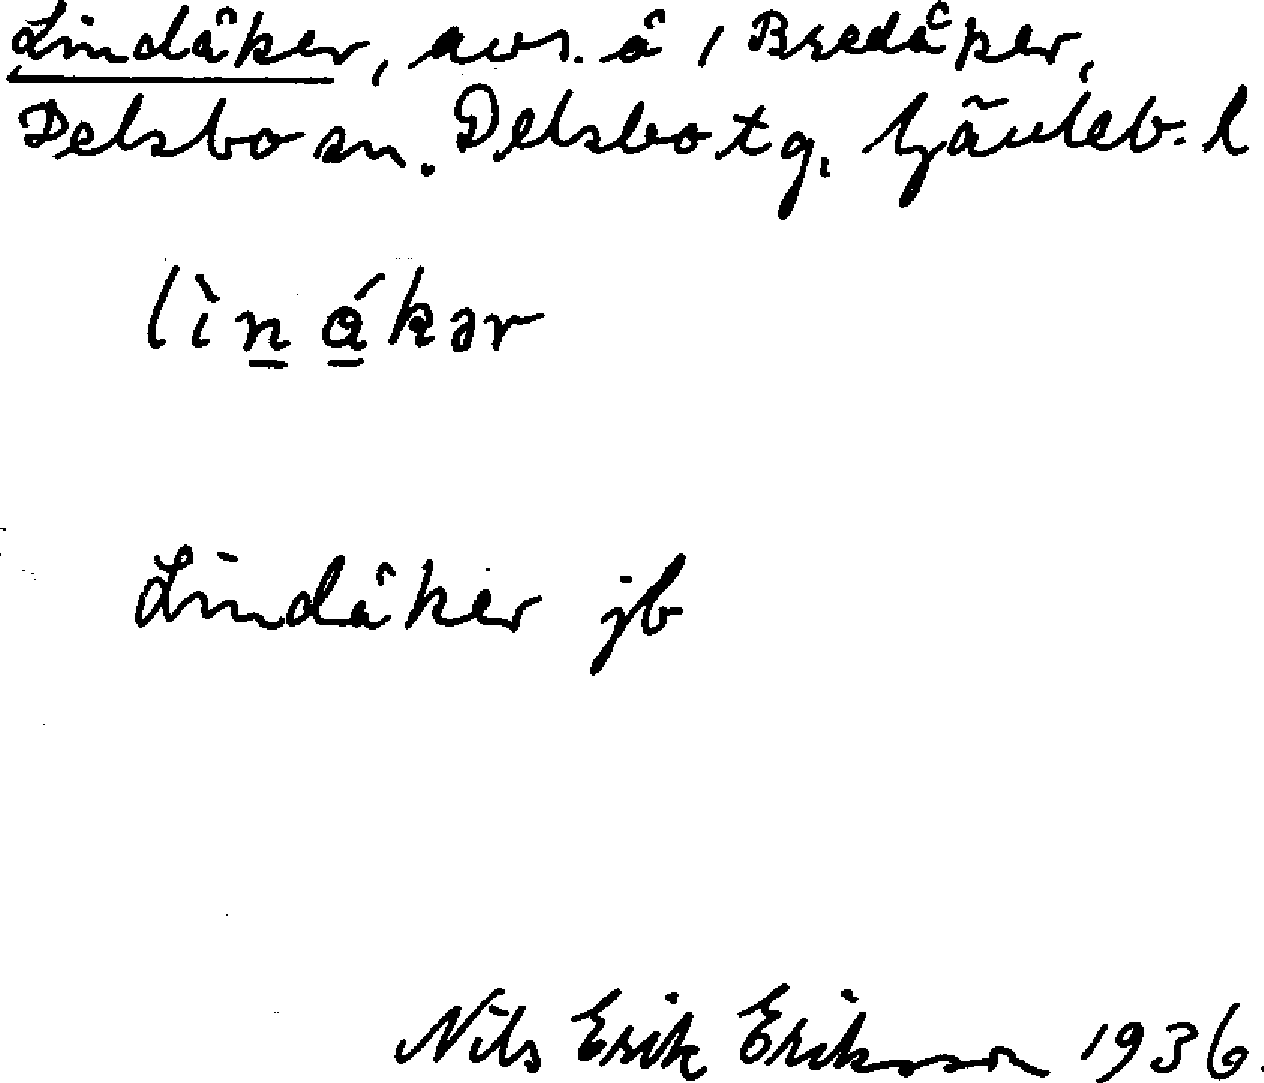 Lindåker, avs. å 1 Bredåker,
Delsbo sn. Delsbo tg, Gävleb. l
lìn̲ á̲kər
Lindåker jb
Nils Erik Eriksson 1936.